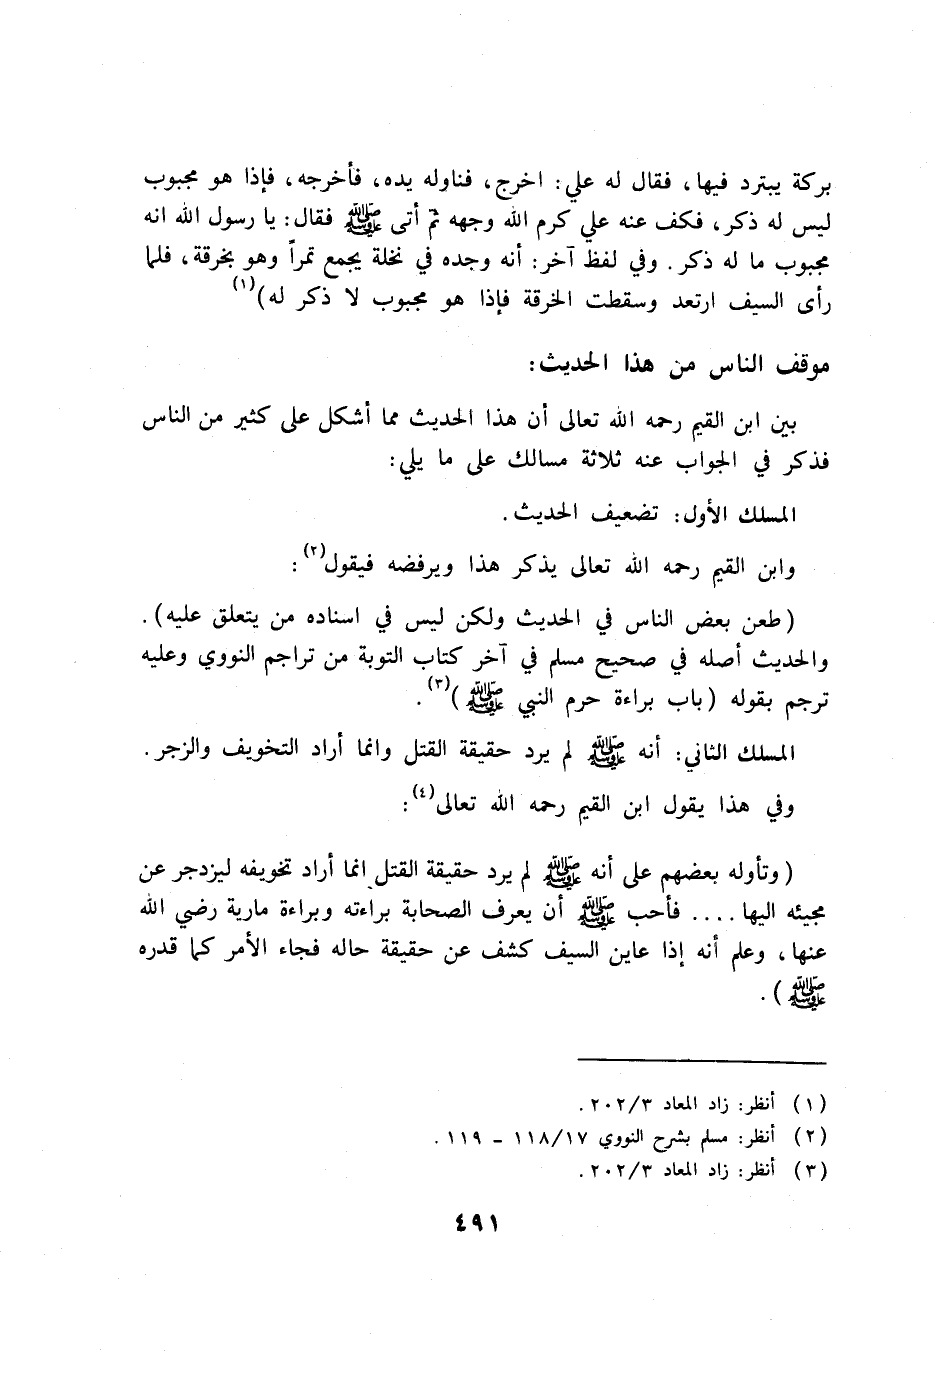 بركة يبترد فيها، فقال له علي: اخرج، فناوله يده، فأخرجه، فإذا هو مجبوب
ليس له ذكر، فكف عنه علي كرم الله وجهه ثم أتى ﷺ فقال: يا رسول الله انه
مجبوب ما له ذكر. وفي لفظ آخر: أنه وجده في نخلة يجمع تمراً وهو بخرقة، فلما
رأى السيف ارتعد وسقطت الخرقة فإذا هو مجبوب لا ذكر له)(١)
موقف الناس من هذا الحديث:
بين ابن القيم رحمه الله تعالى أن هذا الحديث مما أشكل على كثير من الناس
فذكر في الجواب عنه ثلاثة مسالك على ما يلي:
المسلك الأول: تضعيف الحديث.
وابن القيم رحمه الله تعالى يذكر هذا ويرفضه فيقول(٢):
(طعن بعض الناس في الحديث ولكن ليس في اسناده من يتعلق عليه).
والحديث أصله في صحيح مسلم في آخر كتاب التوبة من تراجم النووي وعليه
ترجم بقوله (باب براءة حرم النبي ﷺ)(٣).
المسلك الثاني: أنه ﷺ لم يرد حقيقة القتل وانما أراد التخويف والزجر.
وفي هذا يقول ابن القيم رحمه الله تعالى(٤):
(وتأوله بعضهم على أنه ﷺ لم يرد حقيقة القتل انما أراد تخويفه ليزدجر عن
مجيئه اليها .... فأحب ﷺ أن يعرف الصحابة براءته وبراءة مارية رضي الله
عنها، وعلم أنه إذا عاين السيف كشف عن حقيقة حاله فجاء الأمر كما قدره
ﷺ).
(١) أنظر: زاد المعاد ٢٠٢/٣.
(٢) أنظر: مسلم بشرح النووي ١١٨/١٧ - ١١٩.
(٣) أنظر: زاد المعاد ٢٠٢/٣.
٤٩١